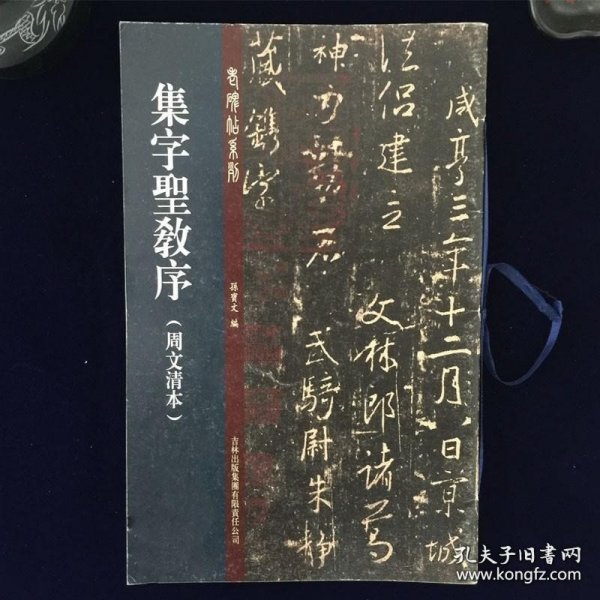 集字聖教序
(周文清本)
老碑帖系列
孫寶文 編
吉林出版集團有限責任公司
咸亨三年十二月八日京城
法侶建立 文林郎諸葛
神力勒石 武騎尉朱靜
藏鐫字
孔夫子旧書网
www.kongfz.com